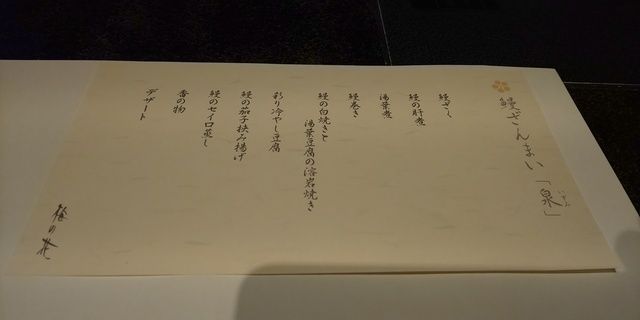 鰻ざんまい「泉」
いずみ
鰻ざく
鰻の肝煮
湯葉煮
鰻巻き
鰻の白焼きと
湯葉豆腐の溶岩焼き
彩り冷やし豆腐
鰻の茄子挟み揚げ
鰻のセイロ蒸し
香の物
デザート
梅の花